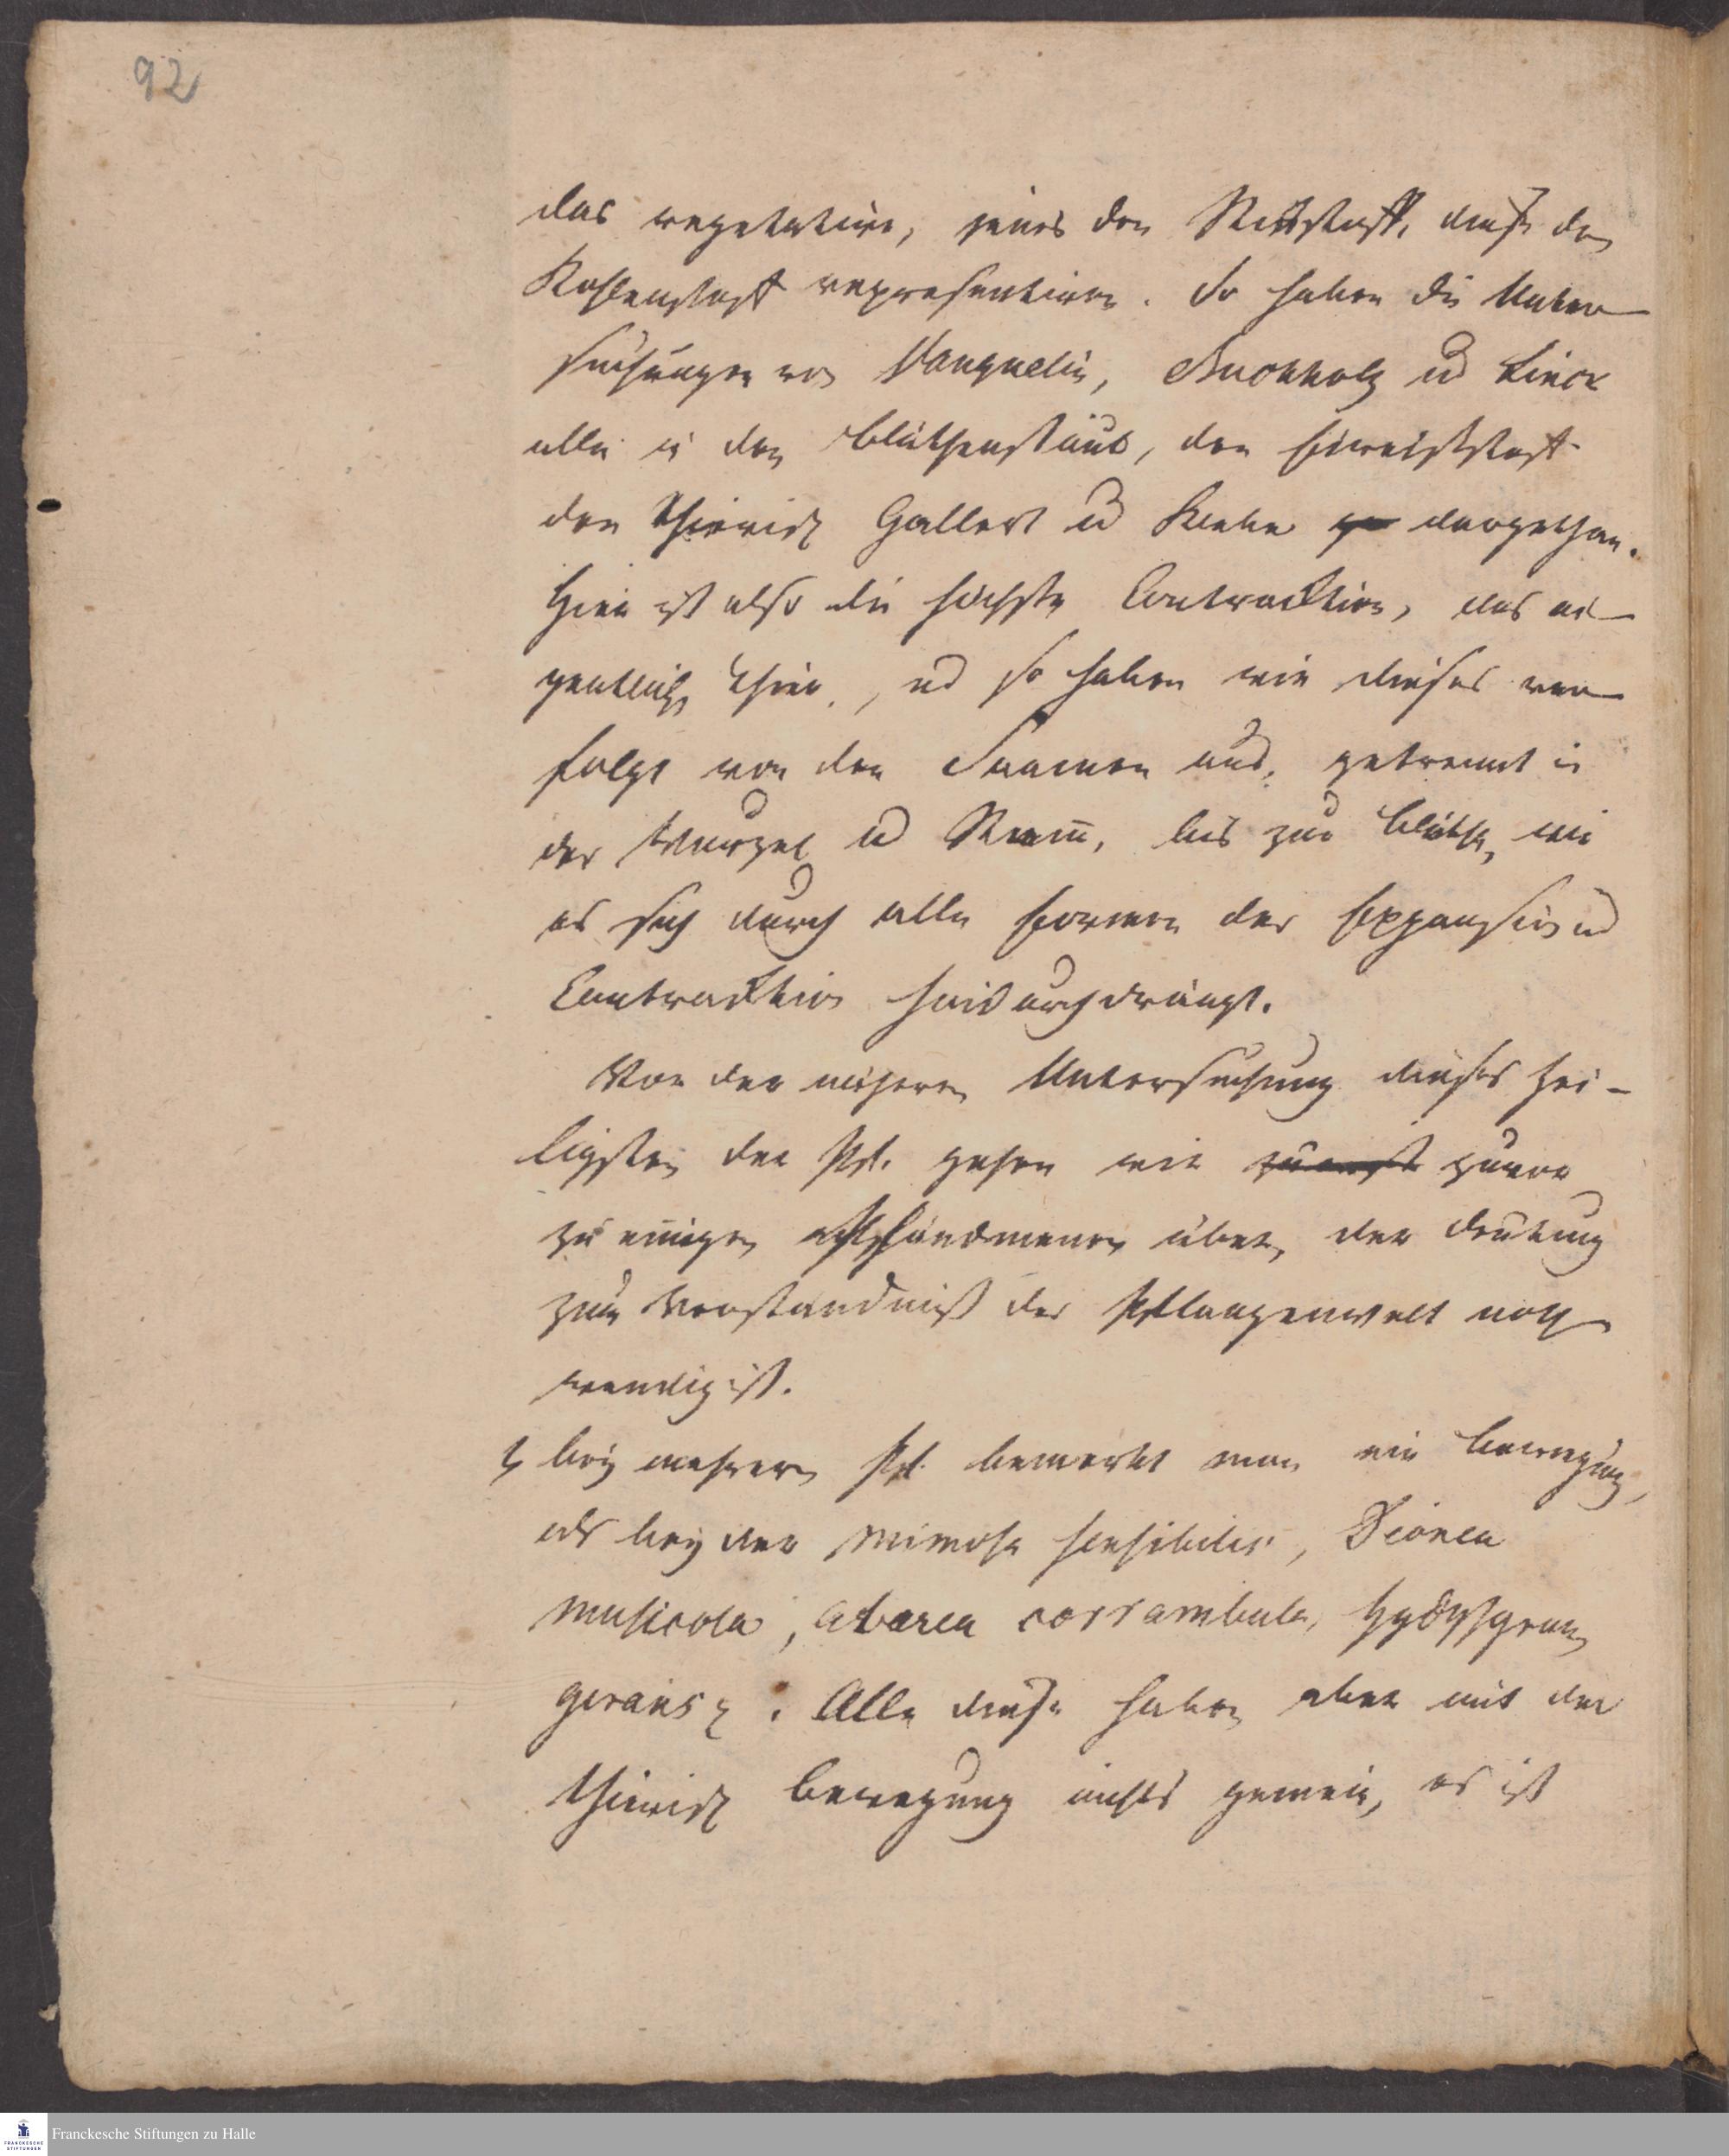 92
das vegetative, jenes den Stickstoff, dieses den
Kohlenstoff representiren. So haben die Unter
suchungen von Vauquelin, Buchholz ud Linck
alle in dem Blüthenstaub, den Eiweißstoff
den thierisch Gallert ud Kleber dargethan.
Hier ist also die höchste Contracktion, das ei-
gentliche Thier, ud so haben wir dieses ver
folgt von dem Saamen aus, getrennt in
der Wurzel ud Stam̄, bis zur Blüthe, wie
es sich durch alle Formen der Expansion ud
Contracktion hindurchdrängt.
Von der nähern Untersuchung dieses hei-
ligsten der Pfl. gehen wir zuerst zuvor
zu einigen Phänomenen über, der Deutung
zum Verständniß der Pflanzenwelt noth
wendig ist.
bey mehrern Pfl. bemerkt man eine Bewegung,
als bey der Mimosa sensibilis, Dionea
musicola, Hedysarum
girans. Alle diese haben aber mit der
thierisch Bewegung nichts gemein, es ist
Franckesche Stiftungen zu Halle
FRANCKESCHE
STIFTUNGEN